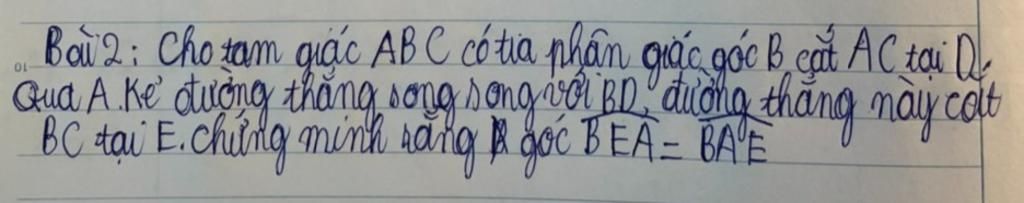 Bài 2: Cho tam giác ABC có tia phân giác góc B cắt AC tại D.
Qua A. Kẻ đường thẳng song song với BD, đường thẳng này cắt
BC tại E. chứng minh rằng góc BEA = BAE